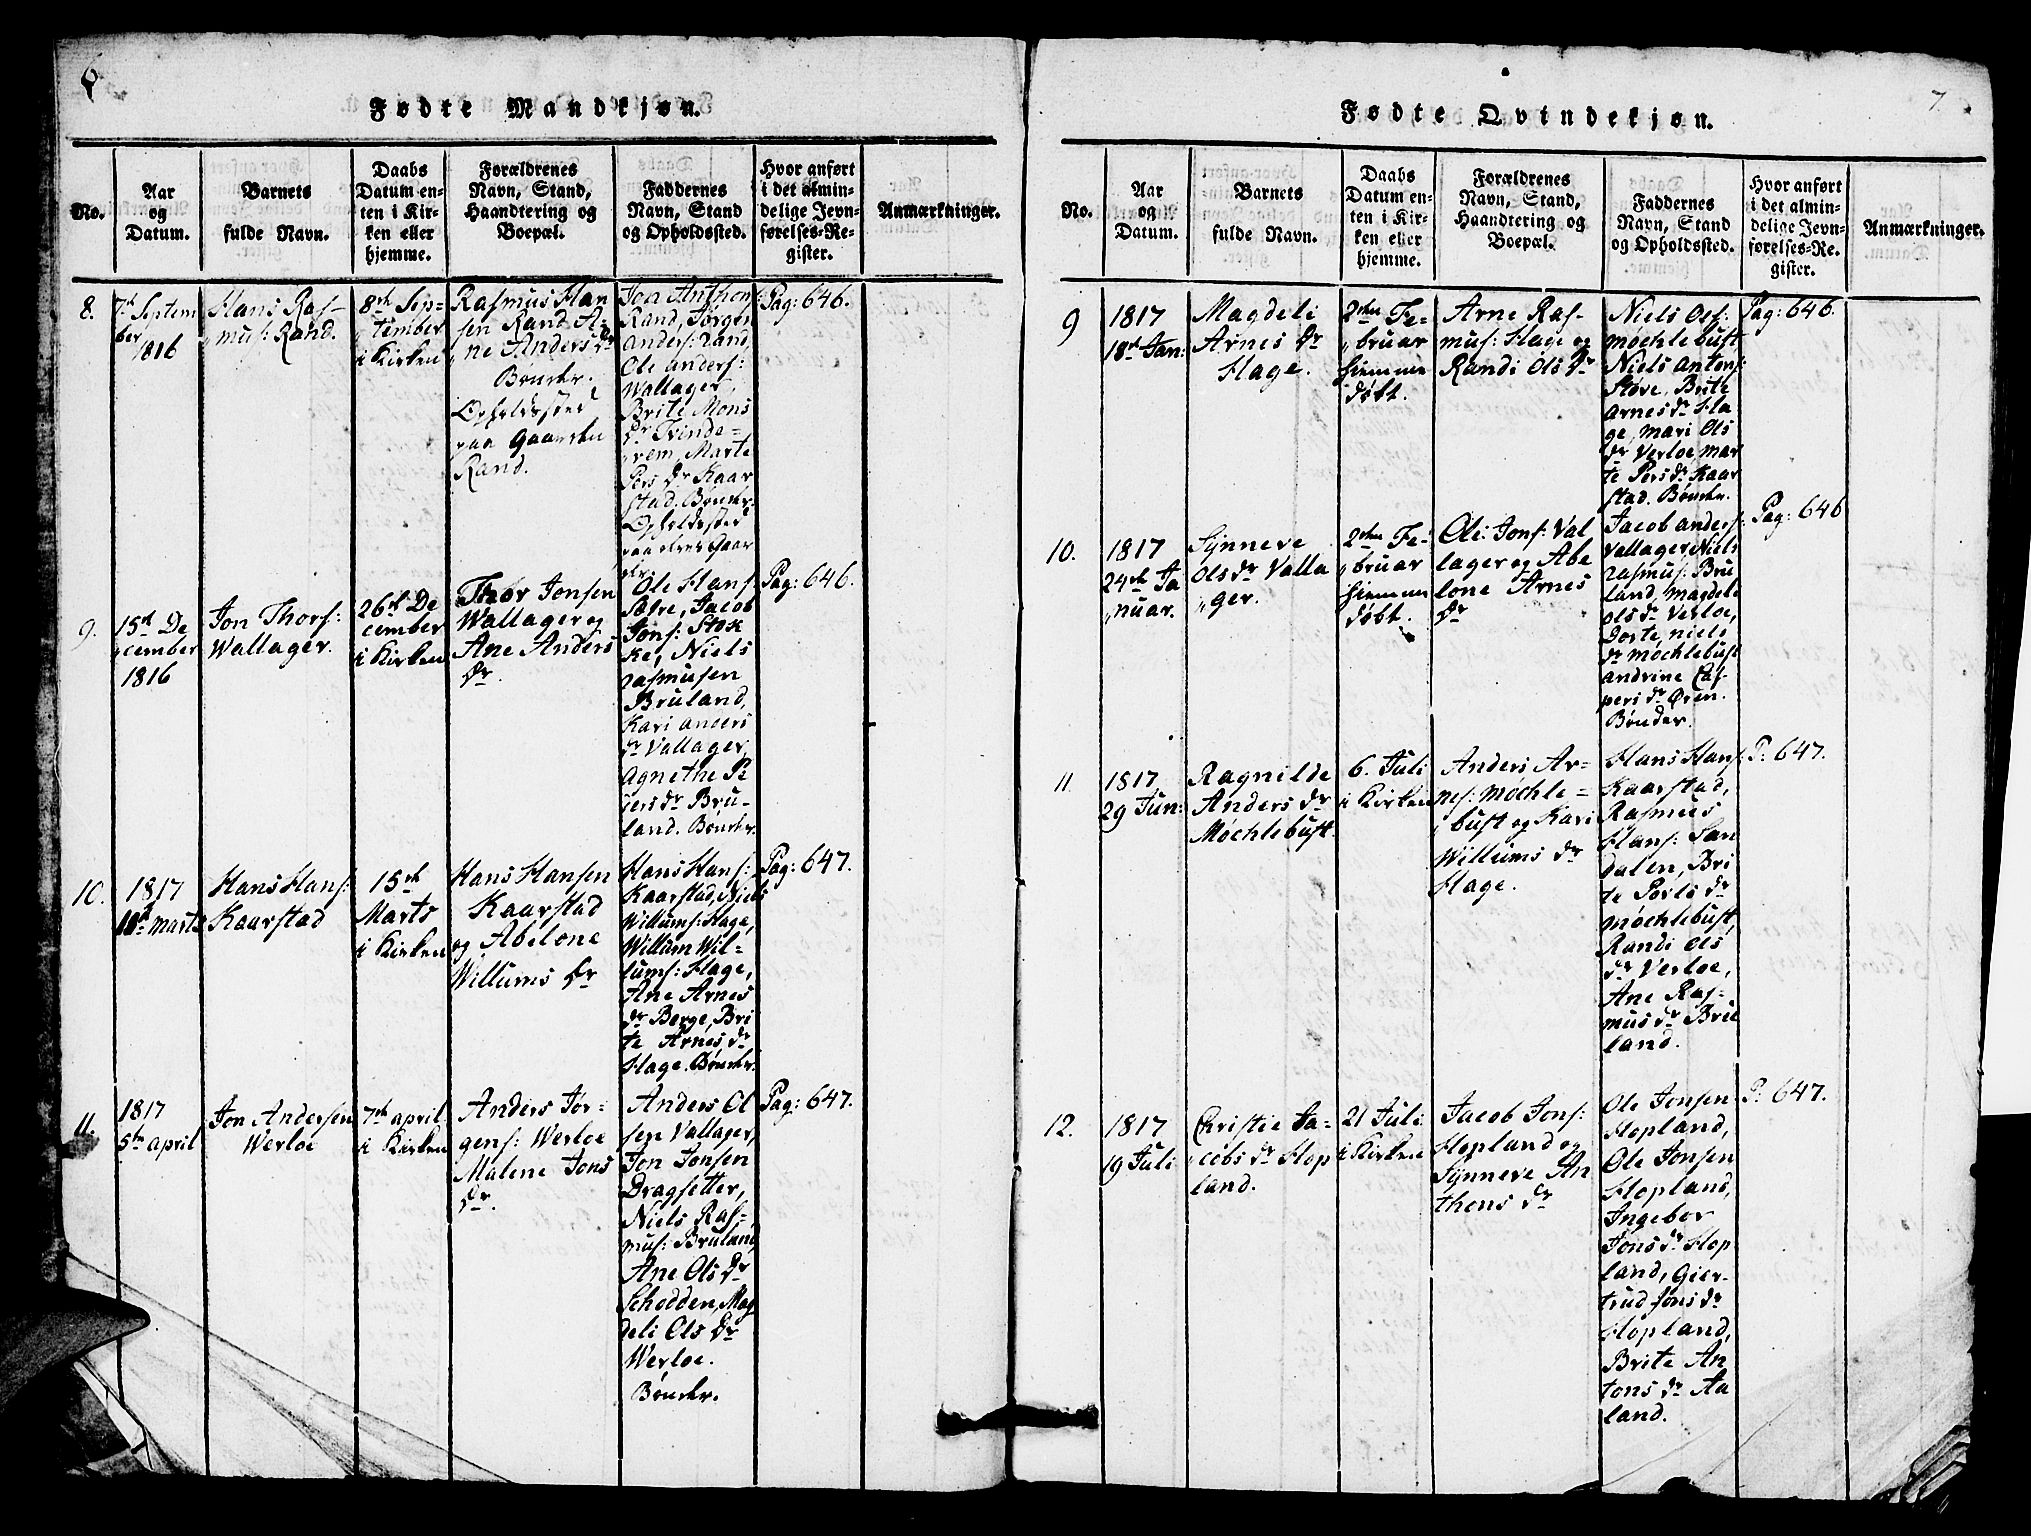 6
Fødte Mandkjøn.
No.
Aar
og
Datum.
Barnets
fulde Navn.
Daabs
Datum en-
ten i Kir-
ken eller
hjemme.
Forældrenes
Navn, Stand,
Haandtering og
Boepæl.
Faddernes
Navn, Stand
og Opholdssted.
Hvor anført
i det almin-
delige Jevn-
førelses-Re-
gister.
Anmærkninger.
8.
7d Septem
ber
1816
Hans Ras-
mus: Rand.
8de Sep-
tember
i Kirken
Rasmus Han
sen Rand A-
ne Anders Dr
Bønder.
Opholdssted
paa Gaarden
Rand.
Jon Anthons:
Rand, Jørgen
Anders: Rand,
Ole Anders:
Wallager,
Brite Mons
Dr Tvinde-
rem, Marte
Pers Dr Kaar
stad. Bønder.
Opholdssted
paa deres Gaar
der.
Pag: 646.
9.
15d De
cember
1816
Jon Thors:
Wallager.
26d De
cember
i Kirken
Thor Jonsen
Wallager og
Ane Anders
Dr.
Ole Hans
Sætre, Jacob
Jons: Stok
ke, Niels
Rasmusen
Bruland,
Kari Anders
Dr Vallager,
Agnethe Pe
ders Dr Bru-
land. Bønder.
Pag: 646.
10.
1817
10d Marts
Hans Hans:
Kaarstad
15de
Marts
i Kirken
Hans Hansen
Kaarstad
og Abelone
Willums Dr
Hans Hans:
Kaarstad, Niels
Willums: Hage,
Willum Wil-
lums: Hage,
Ane Arnes
Dr Berge, Bri
te Arnes Dr
Hage. Bønder.
Pag: 647.
11.
1817
5te April
Jon Andersen
Werloe
7de April
i Kirken
Anders Jør-
gens: Werloe
Malene Jons
Dr.
Anders Ol
sen Vallager,
Jon Jonsen
Dragsetter,
Niels Ras-
mus: Bruland,
Ane Ols Dr
Schodden, Mag
deli Ols Dr
Werloe.
Bønder.
Pag: 647.
7.
Fødte Qvindekjøn.
No.
Aar
og
Datum.
Barnets
fulde Navn.
Daabs
Datum en-
ten i Kir-
ken eller
hjemme.
Forældrenes
Navn, Stand,
Haandtering og
Boepæl.
Faddernes
Navn, Stand
og Opholdssted.
Hvor anført
i det almin-
delige Jevn-
førelses-Re-
gister.
Anmærkninger.
9
1817
18d Jan:
Magdeli
Arnes Dr
Hage.
2den Fe-
bruar
hiemme
døbt.
Arne Ras-
mus: Hage og
Randi Ols Dr
Niels Ols:
Møchlebust
Niels Antons:
Støve, Brite
Arnes Dr Ha
ge, Mari Ols
Dr Verloe Mar
te Pers Dr Kaar
stad. Bønder.
Pag: 646.
10.
1817
24de Ja
nuar.
Synneve
Ols Dr Valla
ger.
2den Fe-
bruar
hiemme
døbt.
Ole Jons: Val
lager og Abe
lone Arnes
Dr
Jacob Anders:
Vallager, Niels
Rasmus: Bru
land, Magdele
Ols Dr Verloe,
Dorte Niels
Dr Møchlebust
Andrine Cas-
pers Dr Øren.
Bønder.
Pag: 646
11
1817
29 Jun:
Ragnilde
Anders Dr
Møchlebust.
6. Juli
i Kirken
Anders Ar-
nes: Møchle-
bust og Kari
Willums Dr
Hage.
Hans Hans:
Kaarstad,
Rasmus
Hans: San
dalen, Bri
te Pauls Dr
Møchlebust,
Randi Ols
Dr Verloe,
Ane Ras-
mus Dr Bru
land.
P: 647.
12.
1817
19 Juli
Christie Ja-
cobs Dr Hop
land.
21 Juli
i Kirken
Jacob Jons:
Hopland og
Synneve An
thons Dr
Ole Jonsen
Hopland,
Ole Jonsen
Hopland,
Ingebor
Jons Dr Hop
land, Gier-
trud Jons Dr
Hopland,
Brite An
tons Dr Aa
land.
P: 647.